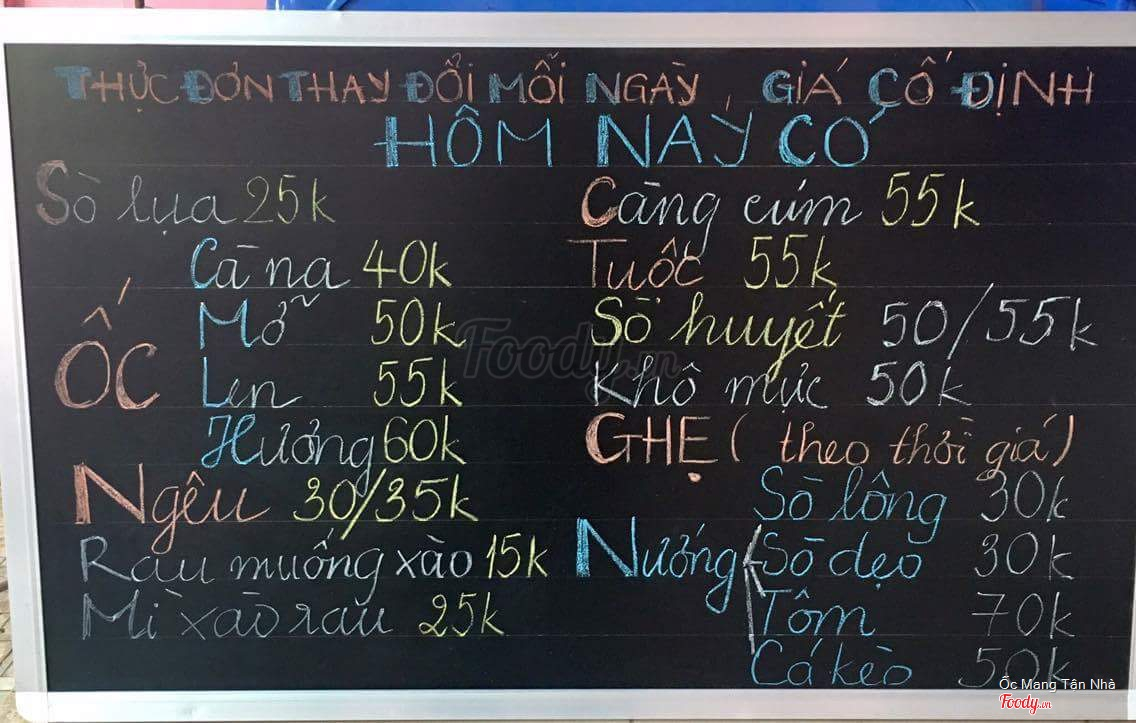 THỰC ĐƠN THAY ĐỔI MỖI NGÀY, GIÁ CỐ ĐỊNH
HÔM NAY CÓ
Sò lụa 25k
ỐC
Cà na 40k
Mỡ 50k
Len 55k
Hương 60k
Ngêu 30/35k
Rau muống xào 15k
Mì xào rau 25k
Càng cúm 55k
Tuốc 55k
Sò huyết 50/55k
Khô mực 50k
GHẸ (theo thời giá)
Nướng
Sò lông 30k
Sò dẹo 30k
Tôm 70k
Cá kèo 50k
Foody.vn
Ốc Mang Tân Nhà
Foody.vn